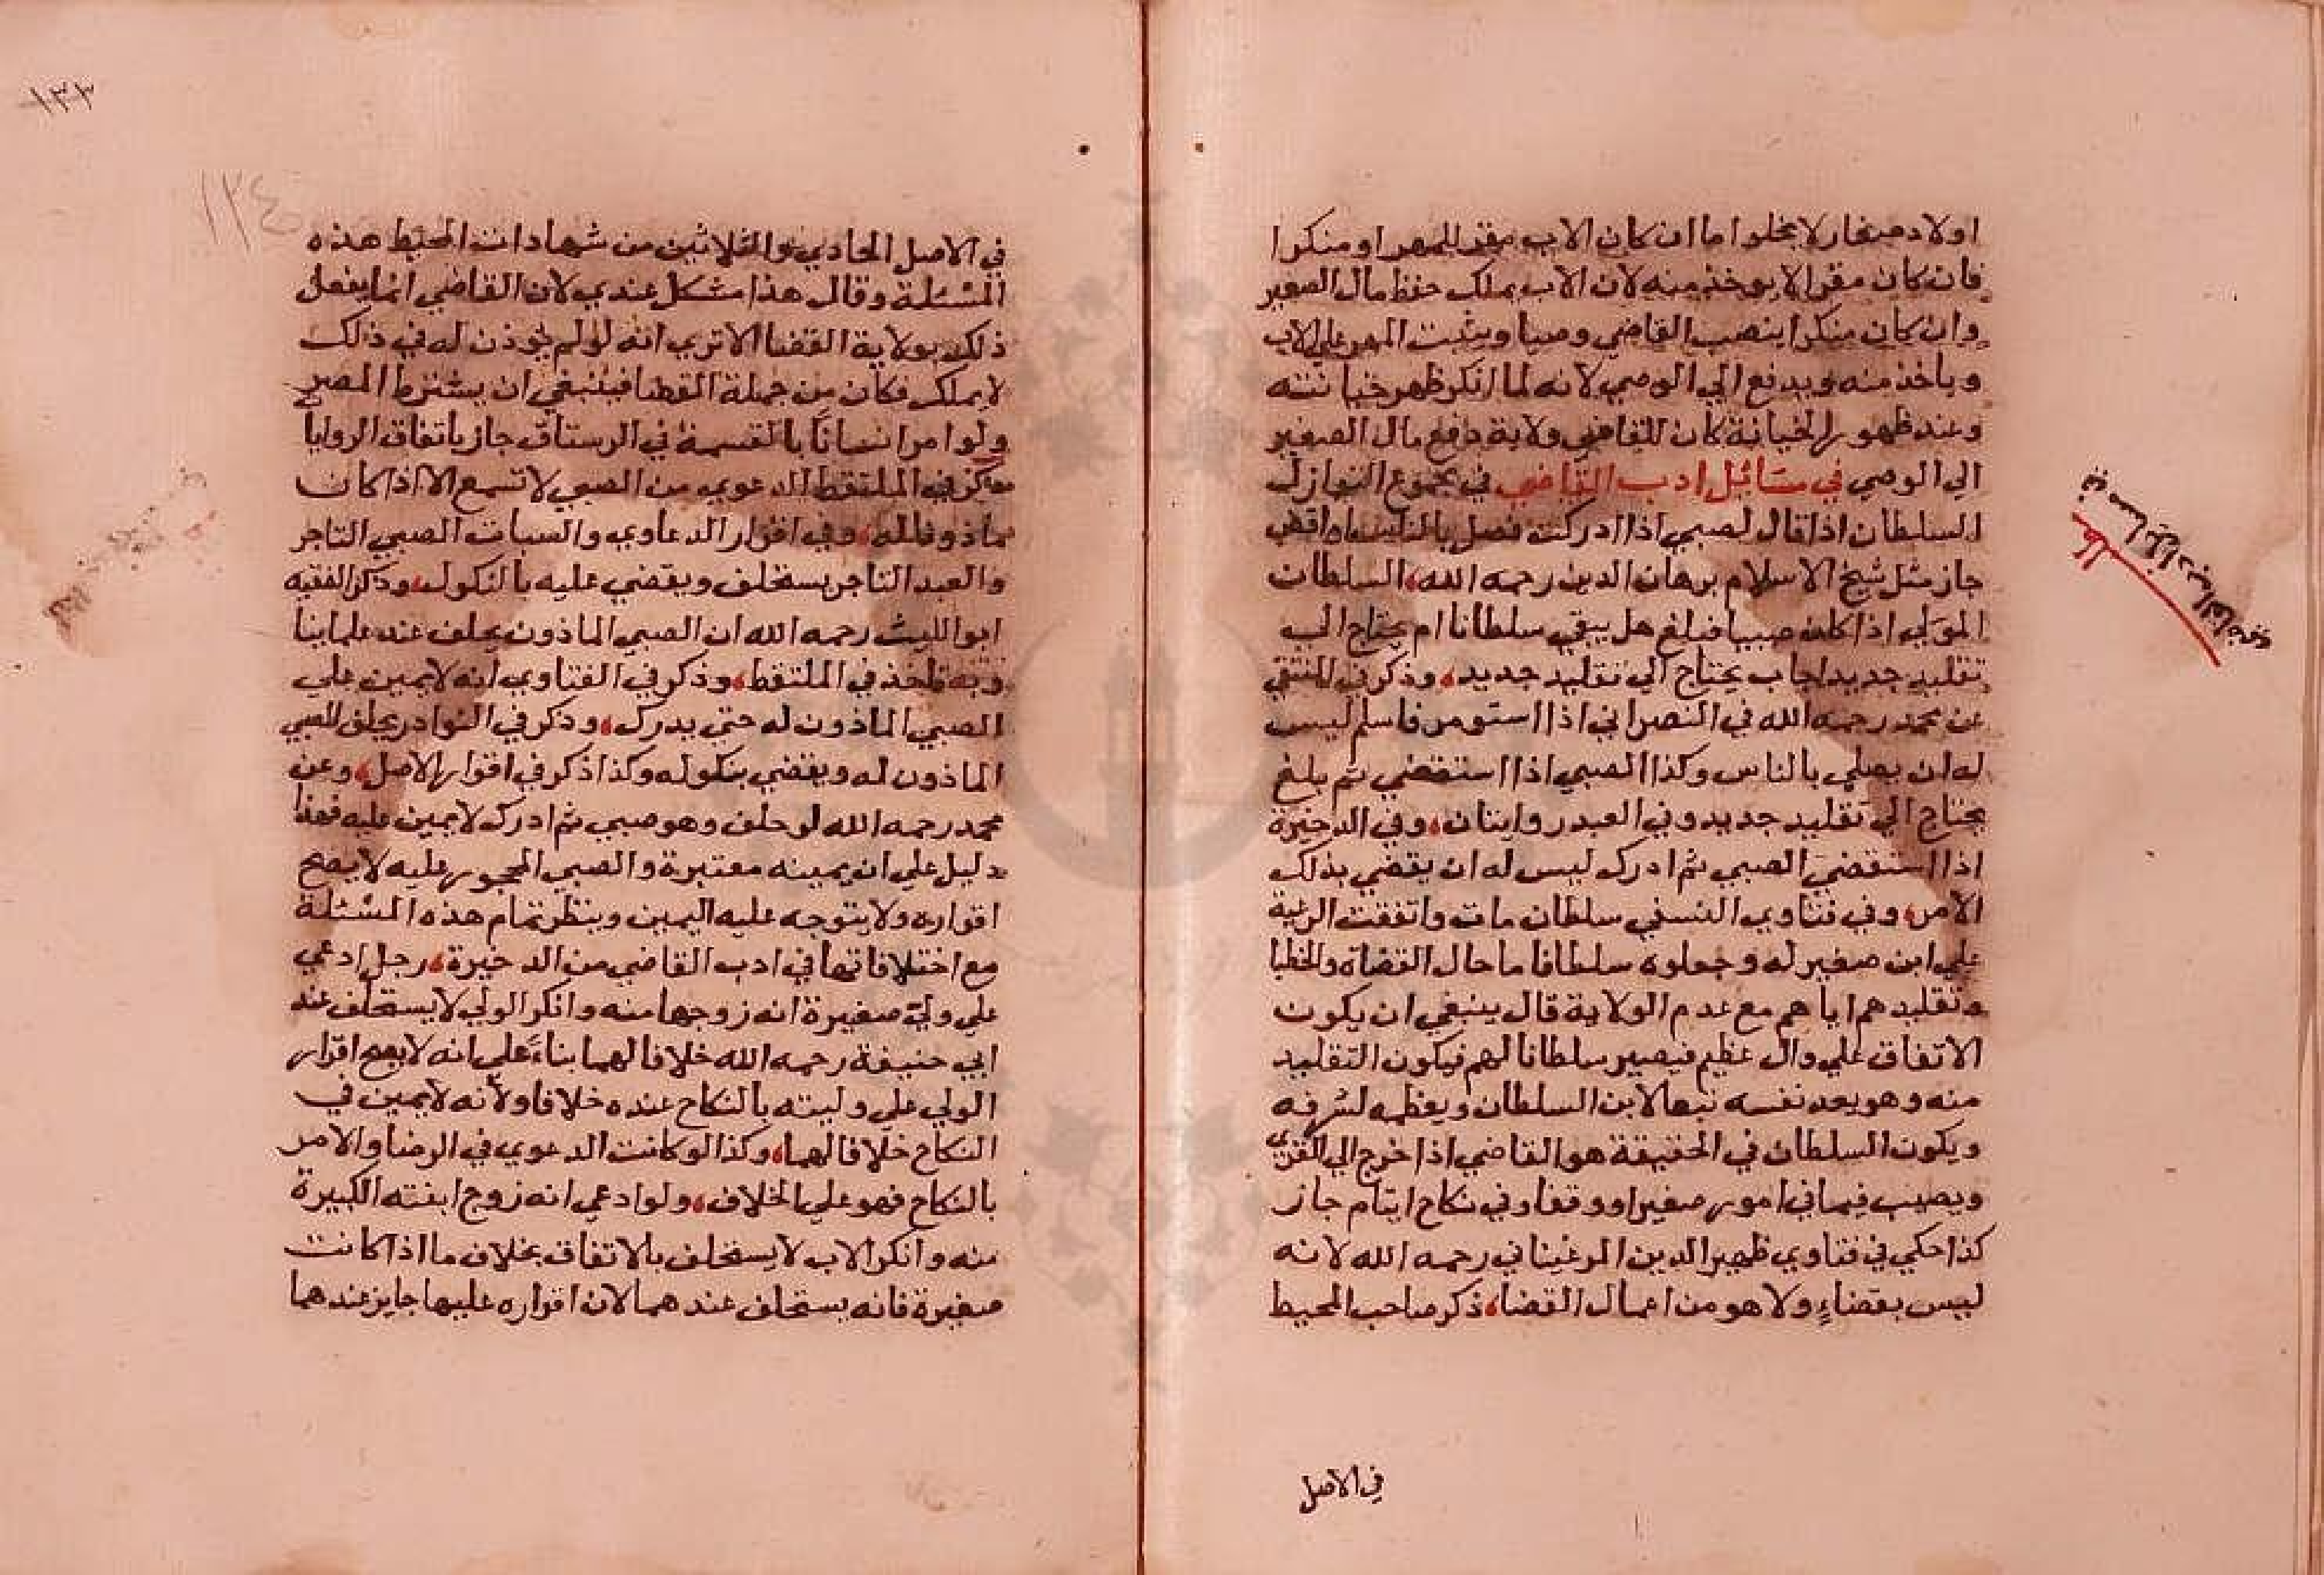 اولاد صغار لا يخلوا اما ان كان الاب مقر للمهر او منكرا
فان كان مقرا لا يوخذ منه لان الاب يملك حفظ مال الصغير
وان كان منكرا ينصب القاضي وصيا ويثبت المهر علي الاب
وياخذ منه ويدفع الي الوصي لانه لما انكر ظهر خيانته
وعند ظهور الخيانة كان للقاضي ولاية دفع مال الصغير
الي الوصي في مسَائل ادب القاضي في مجموع النوازل
السلطان اذا قال لصبي اذا ادركت فصل بالناس او اقض
جاز مثل شيخ الاسلام برهان الدين رحمه الله السلطان
المولي اذا كان صبيا فبلغ هل يبقي سلطانا ام يحتاج الي
تقليد جديد اجاب يحتاج الي تقليد جديد وذكر في المنتقي
عن محمد رحمه الله في النصراني اذا استومر فاسلم ليس
له ان يصلي بالناس وكذا الصبي اذا استقضي ثم بلغ
يحتاج الي تقليد جديد وفي العبد روايتان وفي الدخيرة
اذا استقضي الصبي ثم ادرك ليس له ان يقضي بذلك
الامر وفي فتاوي النسفي سلطان مات واتفقت الرعية
علي ابن صغير له وجعلوه سلطانا ما حال القضاة والخطبا
وتقليدهم اياهم مع عدم الولاية قال ينبغي ان يكون
الاتفاق علي وال عظيم فيصير سلطانا لهم فيكون التقليد
منه وهو يعد نفسه تبعا لابن السلطان ويعظمه لشرفه
ويكون السلطان في الحقيقة هو القاضي اذا خرج الي القري
ويصيب فيما في امور صغيرا ووقفا وفي نكاح ايتام جاز
كذا حكي في فتاوي ظهير الدين المرغيناني رحمه الله لانه
ليس بقضاءٍ ولا هو من اعمال القضا ذكر صاحب المحيط
في الاصل
في مسائل ادب القاضي
١٣٣
١٣٤
في الاصل الحادي والثلاثين من شهادات المحيط هذه
المسئلة وقال هذا مشكل عندي لان القاضي انما يفعل
ذلك بولاية القضا الا تري انه لو لم يوذن له في ذلك
لا يملك فكان من جملة القضا فينبغي ان يشترط المصر
ولو امر انسانًا بالقسمة في الرستاق جاز باتفاق الروايا
في الملتقط الدعوي من الصبي لا تسمع الا اذا كان
ماذونا له وفي اقرار الدعاوي والبينات الصبي التاجر
والعبد التاجر يستحلف ويقضي عليه بالنكول وذكر الفقيه
ابو الليث رحمه الله ان الصبي الماذون يحلف عند علماينا
وبه ناخذ في الملتقط وذكر في الفتاوي انه لا يمين علي
الصبي الماذون له حتي يدرك وذكر في النوادر يحلف الصبي
الماذون له ويقضي بنكوله وكذا ذكر في اقرار الاصل وعن
محمد رحمه الله لو حلف وهو صبي ثم ادرك لا يمين عليه فهذا
دليل علي ان يمينه معتبرة والصبي المحجور عليه لا يصح
اقراره ولا يتوجه عليه اليمين وينظر تمام هذه المسئلة
مع اختلافاتها في ادب القاضي من الدخيرة رجل ادعي
علي ولي صغيرة انه زوجها منه وانكر الولي لا يستحلف عند
ابي حنيفة رحمه الله خلافا لهما بناءً علي انه لا يصح اقرار
الولي علي وليته بالنكاح عنده خلافا ولانه لا يمين في
النكاح خلافا لهما وكذا لو كانت الدعوي في الرضا والامر
بالنكاح فهو علي الخلاف ولو ادعي انه زوج ابنته الكبيرة
منه وانكر الاب لا يستحلف بالاتفاق بخلاف ما اذا كانت
صغيرة فانه يستحلف عندهما لان اقراره عليها جايز عندهما